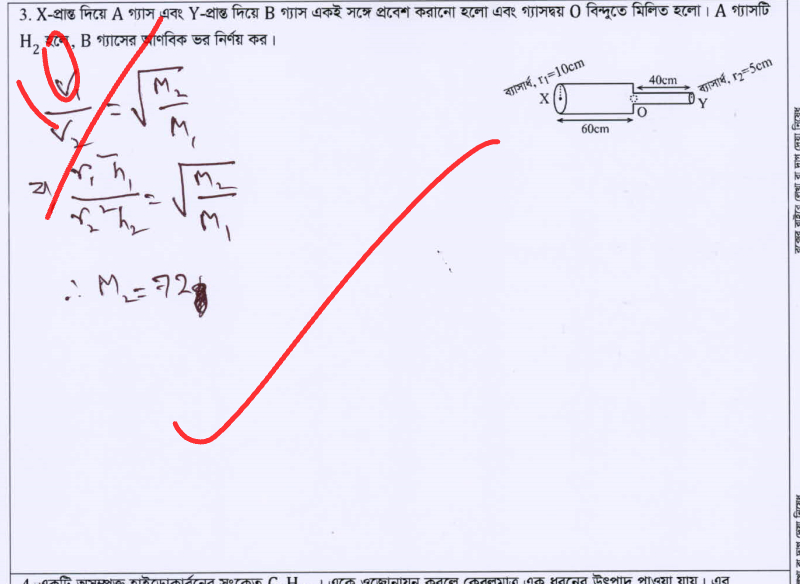 3. X-প্রান্ত দিয়ে A গ্যাস এবং Y-প্রান্ত দিয়ে B গ্যাস একই সঙ্গে প্রবেশ করানো হলো এবং গ্যাসদ্বয় O বিন্দুতে মিলিত হলো। A গ্যাসটি
H₂ হলে, B গ্যাসের আণবিক ভর নির্ণয় কর।
ব্যাসার্ধ, r₁=10cm
40cm
ব্যাসার্ধ, r₂=5cm
X
O
Y
60cm
V₁/V₂ = √(M₂/M₁)
বা r₁² h₁ / r₂² h₂ = √(M₂/M₁)
∴ M₂ = 72
4. একটি অসম্পৃক্ত হাইড্রোকার্বনের সংকেত C H । একে ওজোনায়ন করলে কেবলমাত্র এক ধরনের উৎপাদ পাওয়া যায়। এর